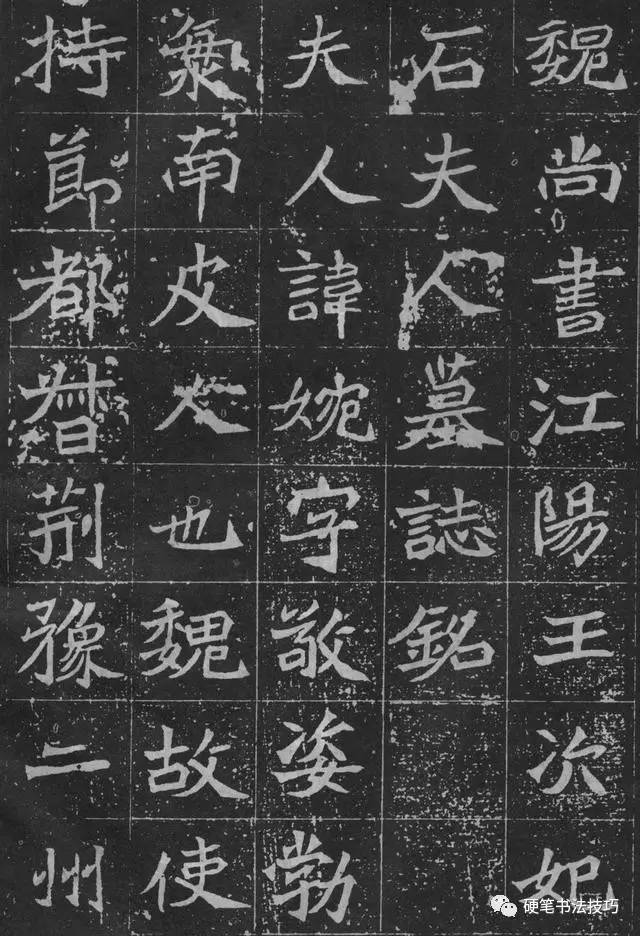 魏尚書江陽王次妃
石夫人墓誌銘
夫人諱婉字敬姿勃
海南皮人也魏故使
持節都督荊豫二州
硬笔书法技巧